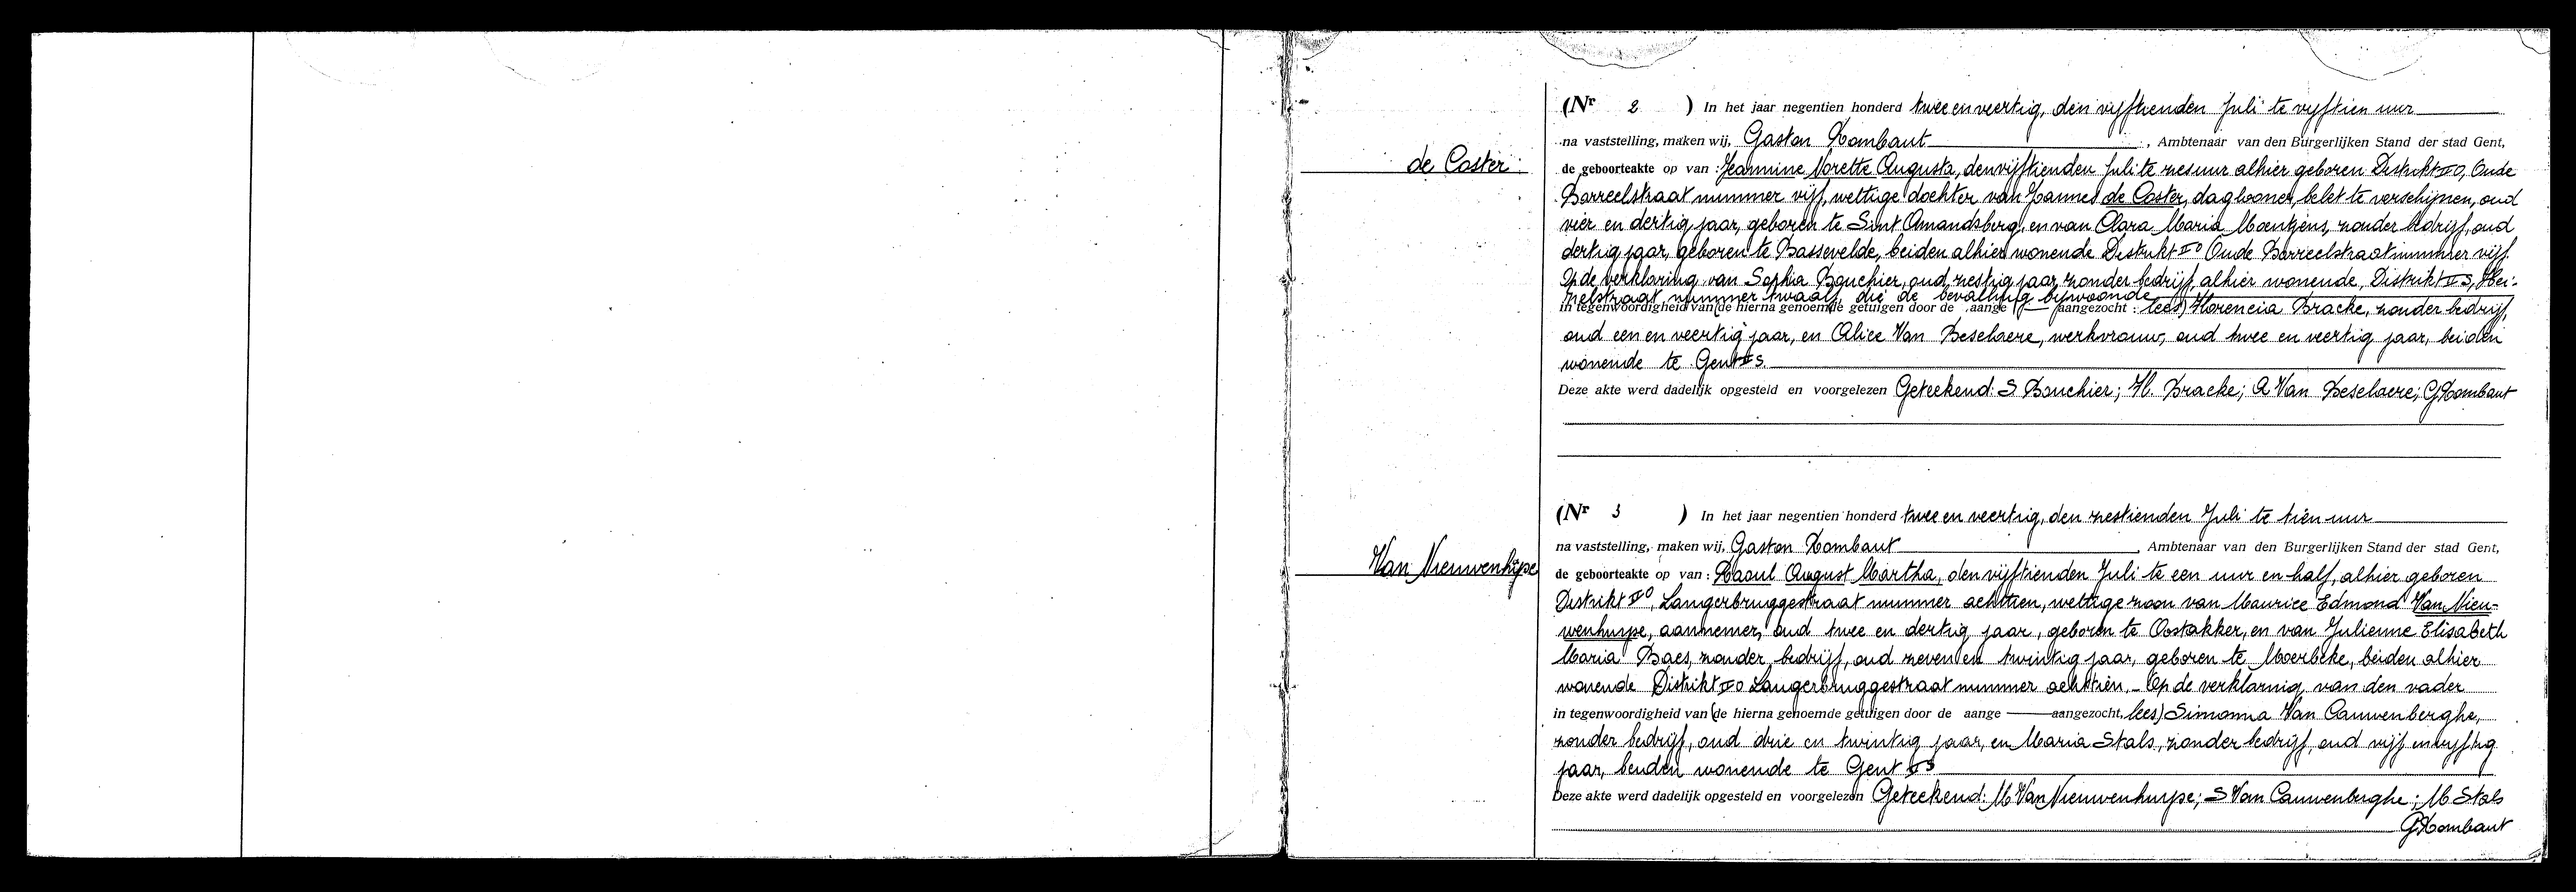 (Nr 2 ) In het jaar negentien honderd twee en veertig, den vijftienden Juli te vyftien uur
na vaststelling, maken wij, Gaston Rombaut , Ambtenaar van den Burgerlijken Stand der stad Gent,
de Coster
de geboorteakte op van : Jeannine Norette Augusta, den vijftienden Juli te zes uur alhier geboren Distrikt II O, Oude
Barreelstraat nummer vijf, wettige dochter van Joannes de Coster, daglooner, belet te verschijnen, oud
vier en dertig jaar, geboren te Sint Amandsberg, en van Clara Maria Moentjens, zonder bedrijf, oud
dertig jaar, geboren te Bassevelde, beiden alhier wonende Distrikt II O Oude Barreelstraat nummer vijf.
Op de verklaring van Sophia Bouchier, oud zestig jaar, zonder bedrijf, alhier wonende, Distrikt II S,
nummer twaalf, die de bevalling bijwoonde
in tegenwoordigheid van (de hierna genoemde getuigen door de aange aangezocht : lees) Florencia Bracke, zonder bedrijf,
oud een en veertig jaar, en Alice Van Beselaere, werkvrouw, oud twee en veertig jaar, beiden
wonende te Gent II S.
Deze akte werd dadelijk opgesteld en voorgelezen Geteekend: S Bouchier; Fl. Bracke; A Van Beselaere; G Rombaut
(Nr 3 ) In het jaar negentien honderd twee en veertig, den zestienden Juli te tien uur
na vaststelling, maken wij, Gaston Rombaut , Ambtenaar van den Burgerlijken Stand der stad Gent,
Van Nieuwenhuyse
de geboorteakte op van : Raoul August Martha, den vijftienden Juli te een uur en half, alhier geboren
Distrikt II O, Langerbruggestraat nummer achttien, wettige zoon van Maurice Edmond Van Nieu-
wenhuyse, aannemer, oud twee en dertig jaar, geboren te Oostakker, en van Julienne Elisabeth
Maria Baes, zonder bedrijf, oud zeven en twintig jaar, geboren te Moerbeke, beiden alhier
wonende Distrikt II O Langerbruggestraat nummer achttien. - Op de verklaring van den vader
in tegenwoordigheid van (de hierna genoemde getuigen door de aange aangezocht, lees) Simonna Van Cauwenberghe,
zonder bedrijf, oud drie en twintig jaar, en Maria Stals, zonder bedrijf, oud vijf en vyftig
jaar, beiden wonende te Gent II S
Deze akte werd dadelijk opgesteld en voorgelezen Geteekend: M Van Nieuwenhuyse; S Van Cauwenberghe; M Stals
G Rombaut